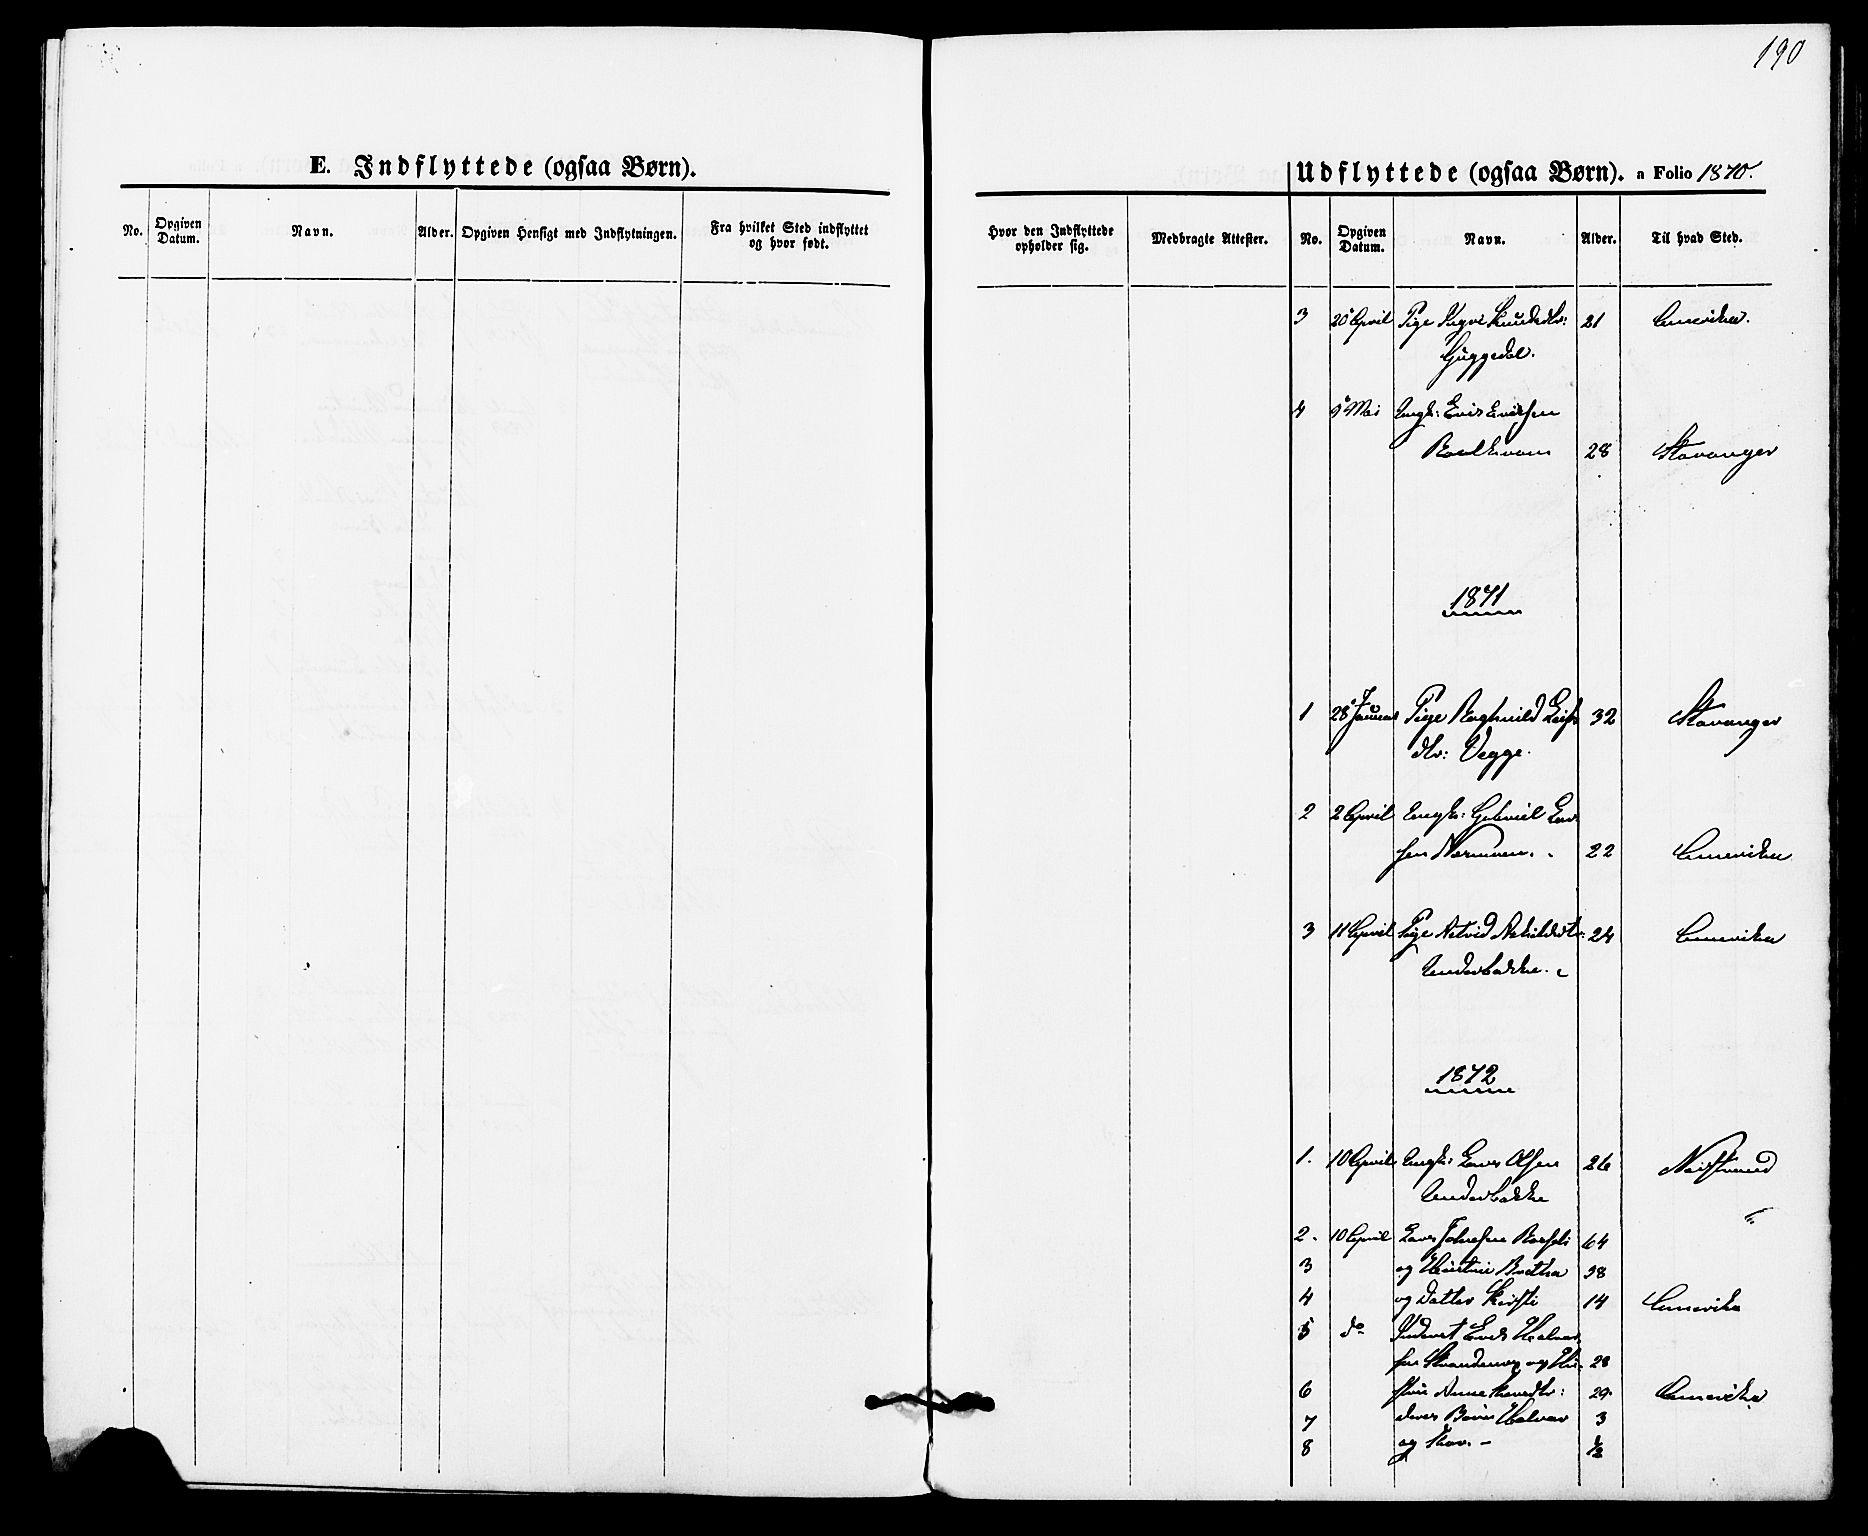 190
E. Indflyttede (ogsaa Børn).
No.
Opgiven Datum.
Navn.
Alder.
Opgiven Hensigt med Indflytningen.
Fra hvilket Sted indflyttet og hvor født.
Udflyttede (ogsaa Børn). a Folio 1870.
Hvor den Indflyttede opholder sig.
Medbragte Attester.
No.
Opgiven Datum.
Navn.
Alder.
Til hvad Sted.
3 20 April Pige Knudsdtr: 21 Amerika.
Guggedal.
4 9 Mai Ungk: Eirik Eriksen
28 Stavanger
1871
1 28 Januar Pige Raghnild Leifs 32 Stavanger
dtr: Vegge.
2 2 April Ungk: Gabriel Lar
sen 22 Amerika
3 11 April Pige 24 Amerika
Underbakke.
1872
1. 10 April Ungk: Lars Olsen 26 Nerstrand
Underbakke
2. 10 April Lars Johnsen 64 "
3 og Hustrue Bertha 38
4 og Datter Kirsti 14 Amerika
5 do Inderst Halvor
sen og Hu- 28
6 strue Anne 29 Amerika
7 deres Børn Halvor 3
8 og Thor. - ½